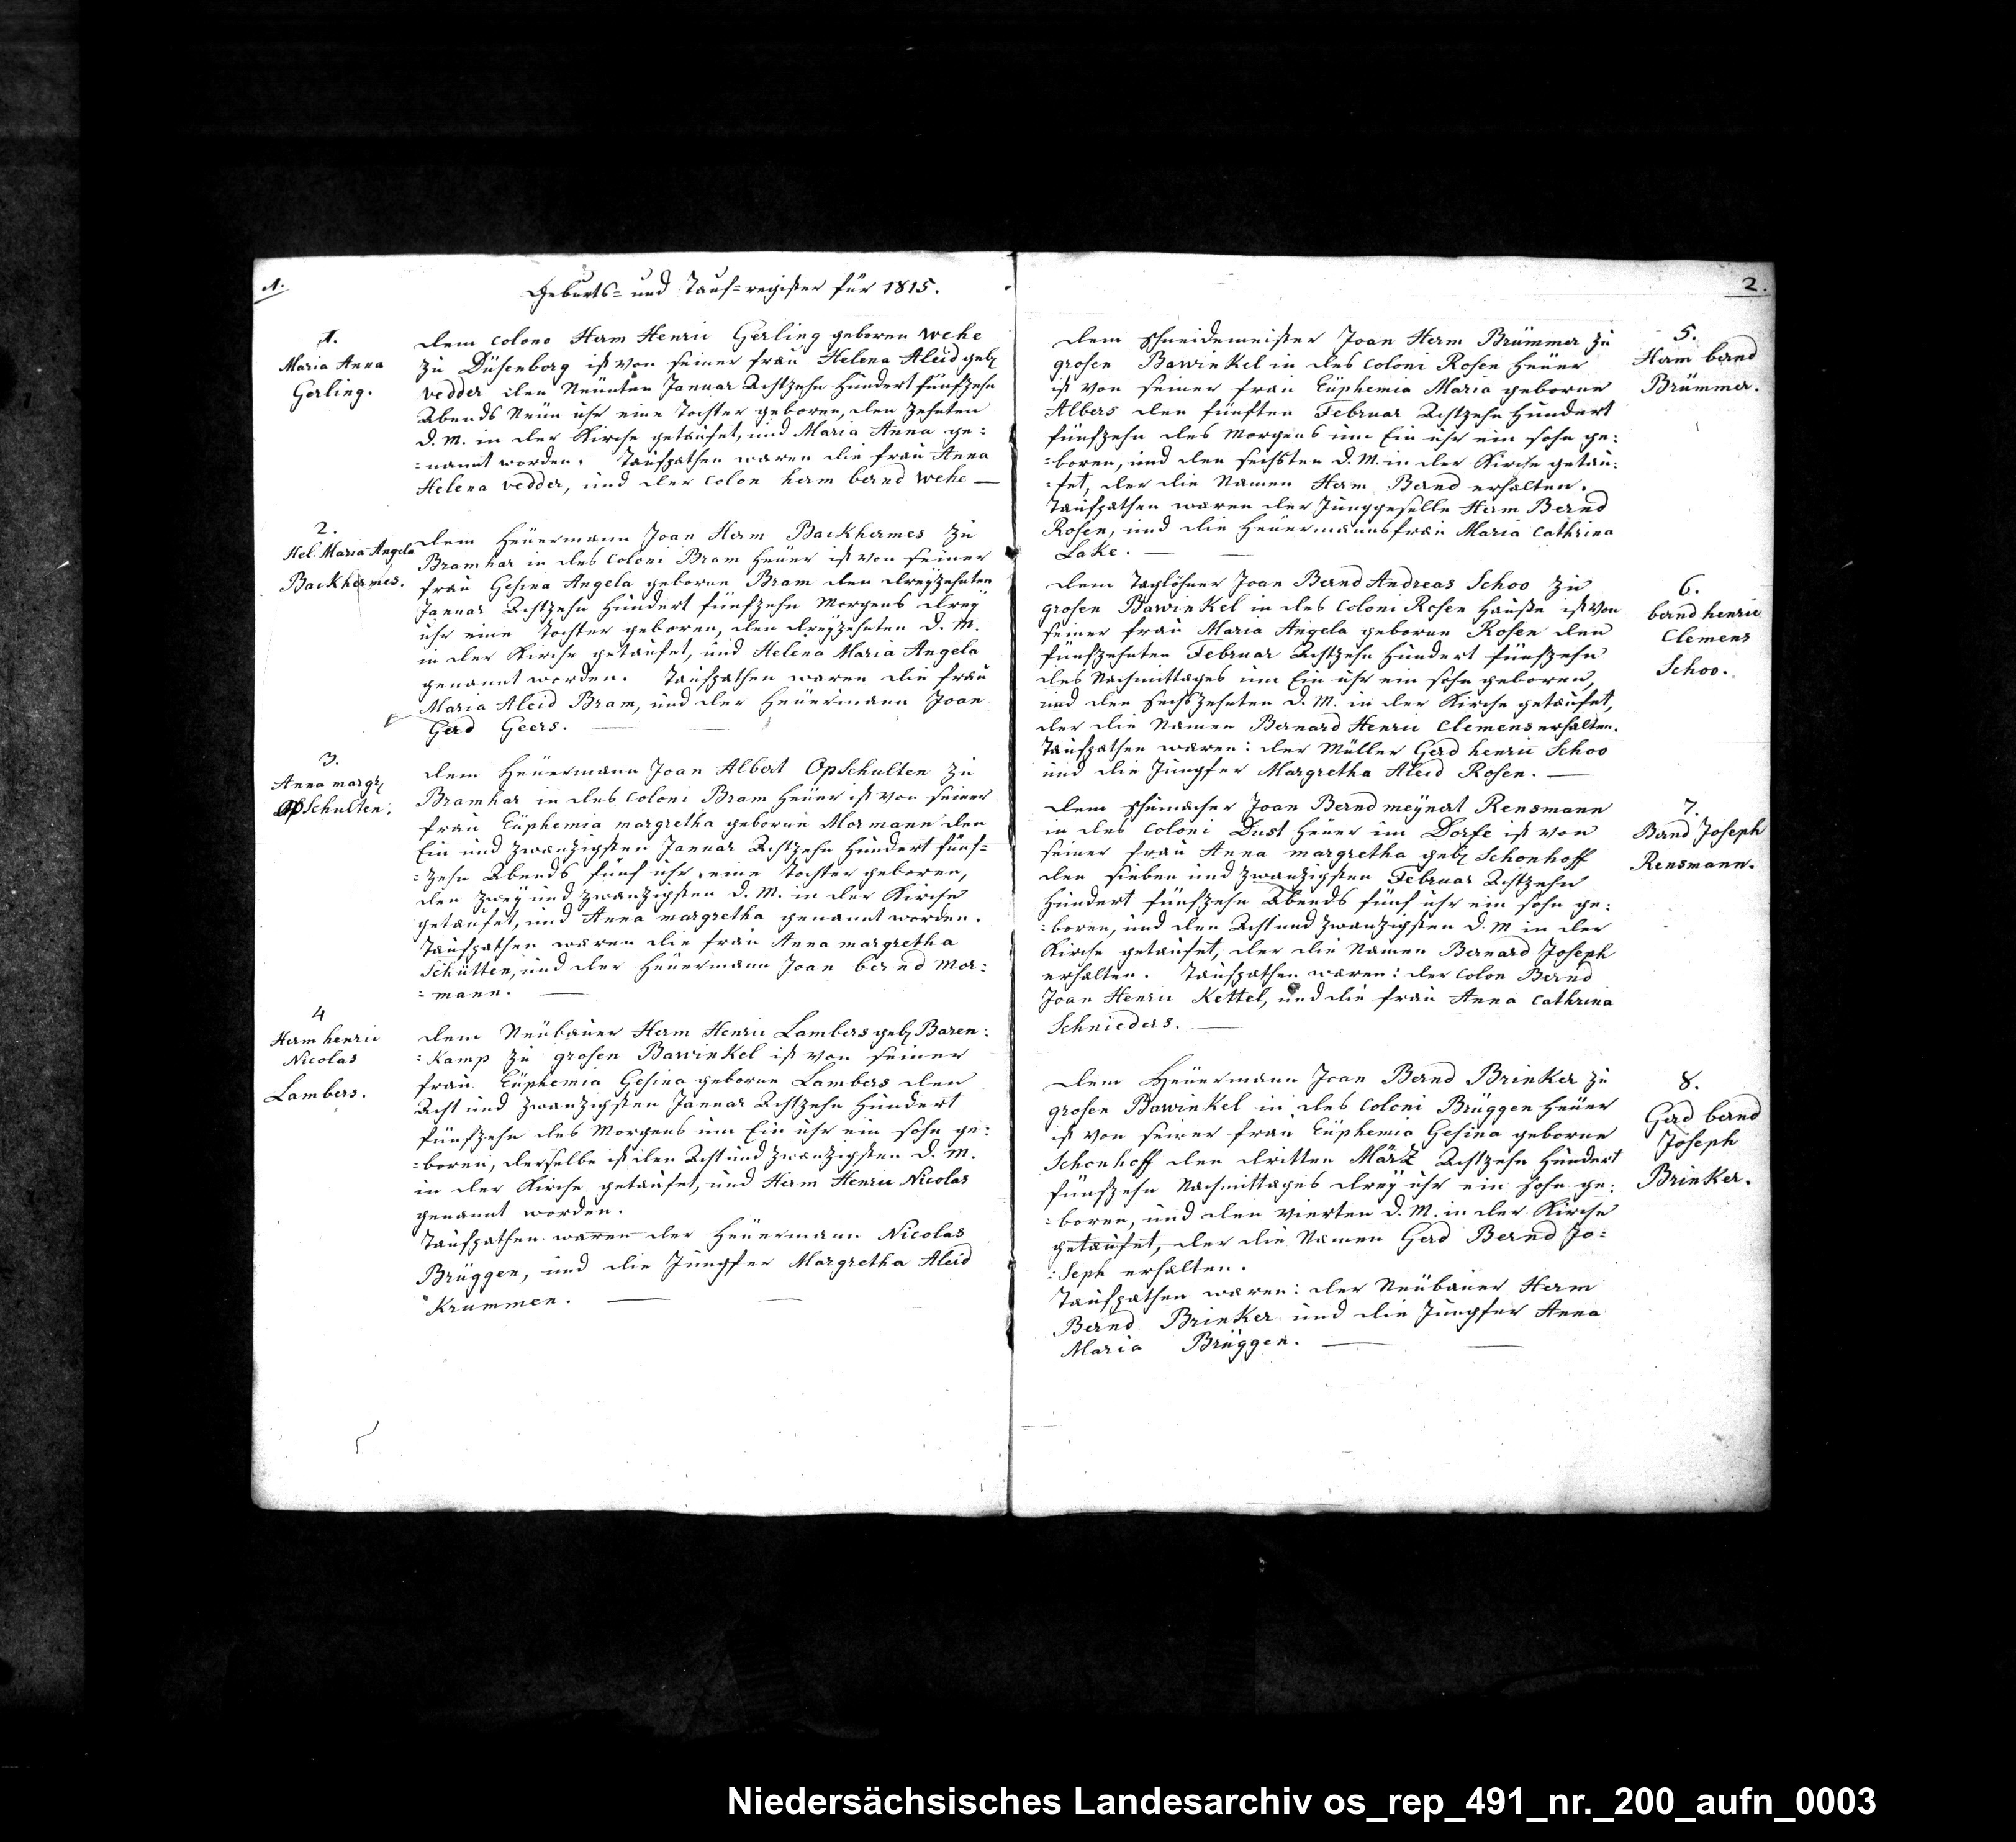 1.
Geburts- und Tauf-register für 1815.
1.
Maria Anna
Gerling.
Dem Colono Herm Henric Gerling geboren Wehe
zu Düsenborg ist von seiner frau Helena Aleid geb
Vedder den Neünten Januar Achtzehn Hundert fünfzehn
Abends Neün uhr eine Tochter geboren, den Zehnten
d. M. in der Kirche getaufet, und Maria Anna ge=
=nannt worden. Taufpathen waren die frau Anna
Helena Vedder, und der Colon herm bernd Wehe —
2.
Hel. Maria Angela
Backhermes.
Dem Heüermann Joan Herm Backhermes zu
Bramhar in des Coloni Bram Heüer ist von seiner
frau Gesina Angela geborne Bram den dreyzehnten
Januar Achtzehn Hundert fünfzehn Morgens drey
uhr eine Tochter geboren, den dreyzehnten d. M.
in der Kirche getaufet, und Helena Maria Angela
genannt worden. Taufpathen waren die frau
Maria Aleid Bram, und der Heüermann Joan
Gerd Geers. —
3.
Anna margr
OpSchulten.
Dem Heüermann Joan Albert OpSchulten zu
Bramhar in des Coloni Bram Heüer ist von seiner
frau Euphemia margretha geborne Mormann den
Ein und zwanzigsten Januar Achtzehn Hundert fünf=
=zehn Abends fünf uhr eine Tochter geboren,
den Zwey und zwanzigsten d. M. in der Kirche
getaufet, und Anna margretha genannt worden.
Taufpathen waren die frau Anna margretha
Schütten, und der Heüermann Joan bernd Mor=
=mann. —
4
Herm henric
Nicolas
Lambers.
Dem Neübauer Herm Henric Lambers geb Baren=
=Kamp zu grosen Bawinkel ist von seiner
frau Euphemia Gesina geborne Lambers den
Acht und zwanzigsten Januar Achtzehn Hundert
fünfzehn des Morgens um Ein uhr ein sohn ge=
=boren, derselbe ist den Acht und zwanzigsten d. M.
in der Kirche getaufet, und Herm Henric Nicolas
genannt worden.
Taufpathen waren der Heüermann Nicolas
Brüggen, und die Jungfer Margretha Aleid
Krummen. —
2.
Dem Schneidemeister Joan Herm Brümmer zu
grosen Bawinkel in des Coloni Rosen Heüer
ist von seiner frau Euphemia Maria geborne
Albers den fünften Februar Achtzehn Hundert
fünfzehn des Morgens um Ein uhr ein sohn ge=
=boren, und den sechsten d. M. in der Kirche getau=
=fet, der die Namen Herm Bernd erhalten.
Taufpathen waren der Junggeselle Herm Bernd
Rosen, und die Heüermannsfrau Maria Cathrina
Lake. —
5.
Herm bernd
Brümmer.
Dem Taglöhner Joan Bernd Andreas Schoo zu
grosen Bawinkel in des Coloni Rosen Hause ist von
seiner frau Maria Angela geborne Rosen den
fünfzehnten Februar Achtzehn Hundert fünfzehn
des Nachmittages um Ein uhr ein sohn geboren,
und den sechszehnten d. M. in der Kirche getaufet,
der die Namen Bernard Henric Clemens erhalten.
Taufpathen waren: der Müller Gerd henric Schoo
und die Jungfer Margretha Aleid Rosen. —
6.
bernd henric
Clemens
Schoo.
Dem Schumacher Joan Bernd meynert Rensmann
in des Coloni Dust Heüer im Dorfe ist von
seiner frau Anna margretha geb Schonhoff
den sieben und zwanzigsten Februar Achtzehn
Hundert fünfzehn Abends fünf uhr ein sohn ge=
=boren, und den Acht und zwanzigsten d. M in der
Kirche getaufet, der die Namen Bernard Joseph
erhalten. Taufpathen waren: der Colon Bernd
Joan Henric Kettel, und die frau Anna Cathrina
Schnieders. —
7.
Bernd Joseph
Rensmann.
Dem Heüermann Joan Bernd Brinker zu
grosen Bawinkel in des Coloni Brüggen Heüer
ist von seiner frau Euphemia Gesina geborne
Schonhoff den dritten März Achtzehn Hundert
fünfzehn Nachmittages drey uhr ein sohn ge=
=boren, und den Vierten d. M. in der Kirche
getaufet, der die Namen Gerd Bernd Jo=
=seph erhalten.
Taufpathen waren: der Neübauer Herm
Bernd Brinker und die Jungfer Anna
Maria Brüggen. —
8.
Gerd bernd
Joseph
Brinker.
Niedersächsisches Landesarchiv os_rep_491_nr._200_aufn_0003